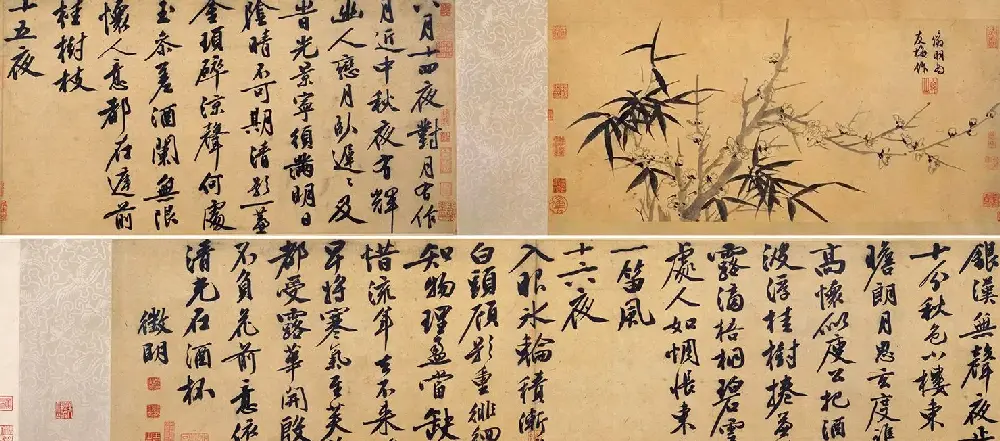 八月十四夜對月有作
月近中秋夜有輝
幽人戀月臥遲〻及
旹光景寧須滿明日
陰晴不可期清影一簾
金瑣碎涼聲何處
玉參差酒闌無限
懷人意都在庭前
桂樹枝
十五夜
徵明為
友梅作
銀漢無聲夜正
十分秋色小樓東
瞻朗月思玄度誰
高懷似庾公把酒
波浮桂樹捲簾
露滴梧桐碧雲
處人如惆悵東
一笛風
十六夜
入眼冰輪積漸
白頭顧影重徘徊
知物理盈當缺
惜流年去不來
早將寒氣至芙
都受露華開殷
不負花前意依
清光在酒杯
徵明